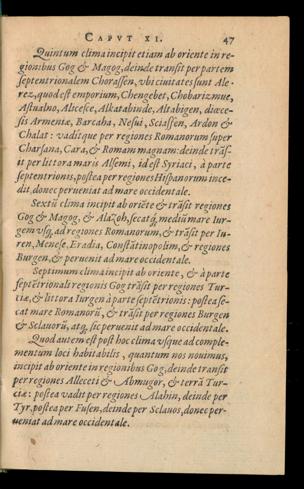 CAPVT XI. 47
Quintum clima incipit etiam ab oriente in re-
gionibus Gog & Magog, deinde transit per partem
septentrionalem Chorassen, vbi ciuitates sunt Ale-
rez, quod est emporium, Chengebet, Chobarizmue,
Astualno, Alicesce, Alkatabinde, Altabigen, diœce-
sis Armeniæ, Barcaha, Nesui, Sciassen, Ardon &
Chalat: vaditque per regiones Romanorum super
Charsana, Cara, & Romam magnam: deinde trãs-
it per littora maris Assemi, id est Syriaci, à parte
septentrionis, postea per regiones Hispanorum ince-
dit, donec perueniat ad mare occidentale.
Sextũ clima incipit ab oriẽte & trãsit regiones
Gog & Magog, & Alazoh, secatq́; mediũ mare Iur-
gem vsq; ad regiones Romanorum, & trãsit per Iu-
ren, Menese, Eradia, Constãtinopolim, & regiones
Burgen, & peruenit ad mare occidentale.
Septimum clima incipit ab oriente, & à parte
septẽtrionali regionis Gog trãsit per regiones Tur-
tiæ, & littora Iurgen à parte septẽtrionis: postea se-
cat mare Romanorũ, & trãsit per regiones Burgen
& Sclauorũ, atq; sic peruenit ad mare occidentale.
Quod autem est post hoc clima vsque ad comple-
mentum loci habitabilis, quantum nos nouimus,
incipit ab oriente in regionibus Gog, deinde transit
per regiones Alleceti & Abmugor, & terrã Tur-
ciæ: postea vadit per regiones Alahin, deinde per
Tyr, postea per Fusen, deinde per Sclauos, donec per-
ueniat ad mare occidentale.